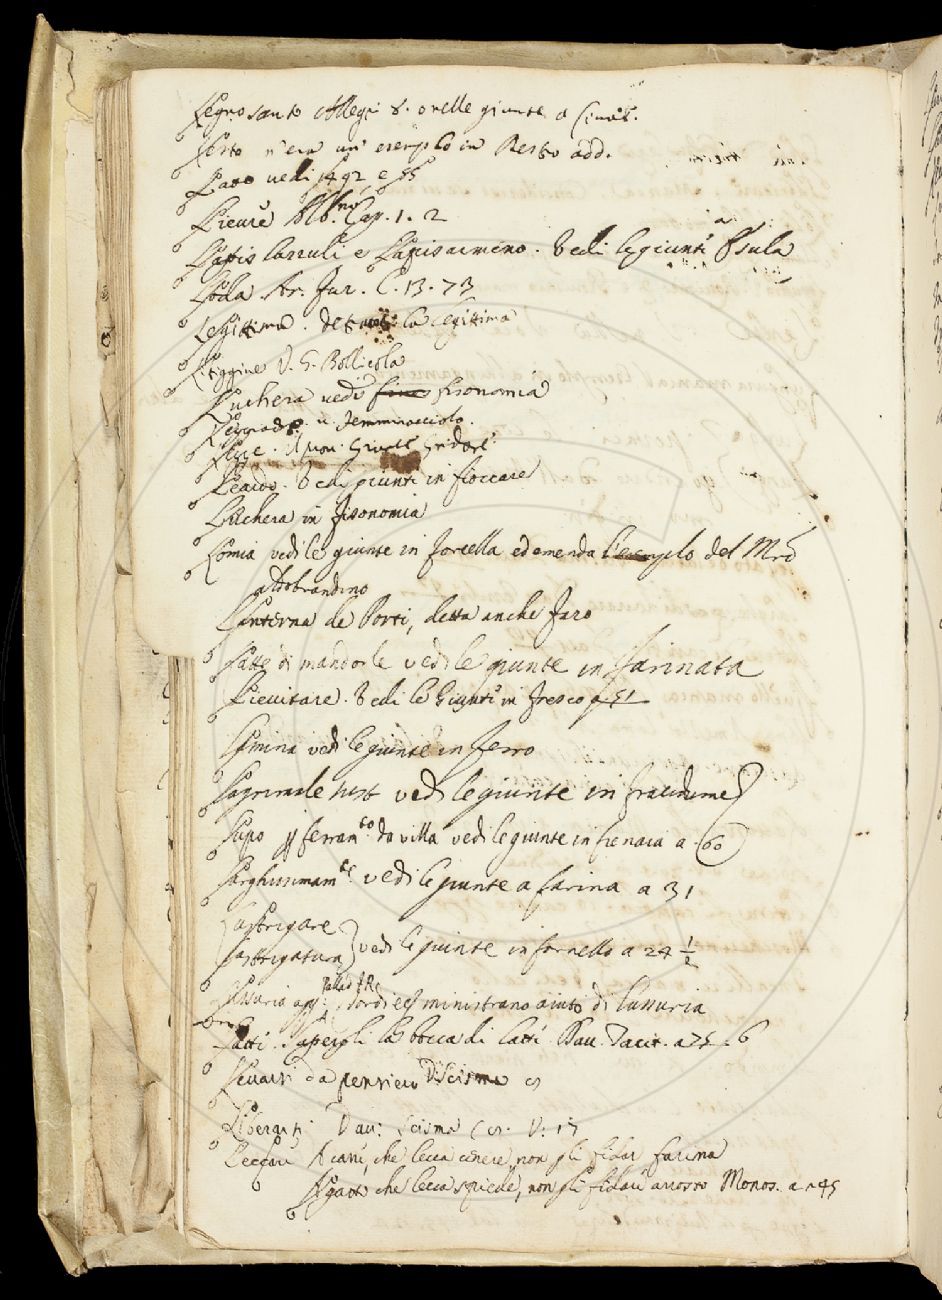 Legno santo Allegri 8. o nelle giunte a Cimol.
Lordo n'era un' esemplo in Resto add.
Lato vedi 1492 e 85
Lieure Alb.no Cap. 1. 2
Lapis lazzuli e Lapis armeno. Vedi le giunte a Isola
Loda Fr. Jac. C. 13. 73
Legittima. la legittima
Litiggine V. G. Bollicola
Luchera vedi fisonomia
v. Femminacciolo.
Giunte Gridare
Leardo. Vedi giunte in fioccare
Luchera in fisonomia
Lomia vedi le giunte in forcella, ed emenda l'esemplo del Mro
aldobrandino
Lanterna de Porti, detta anche faro
Latte di mandorle vedi le giunte in farinata
Lievitare. Vedi le Giunte in fresco a 51
Lamina vedi le giunte in ferro
Lagrimale vedi le giunte in fracidume
Lupo p ferram.to da villa vedi le giunte in fienaia a 60
Larghissimam.te vedi le giunte a farina a 31
Lastrigare
Lastrigatura vedi le giunte in fornello a 24 1/2
Lussuria agg: Pallad. FR. ministrano aiuto di lussuria
Latti. la bocca di latte Dav. Tacit. a 75. 6
Levarsi da pensiero Dav. Scisma
Liberarsi Dav. Scisma V. 17
Leccare A cane, che lecca cenere non gli fidar farina
A gatto che lecca spiede, non gli fidare arrosto Monos. a 145